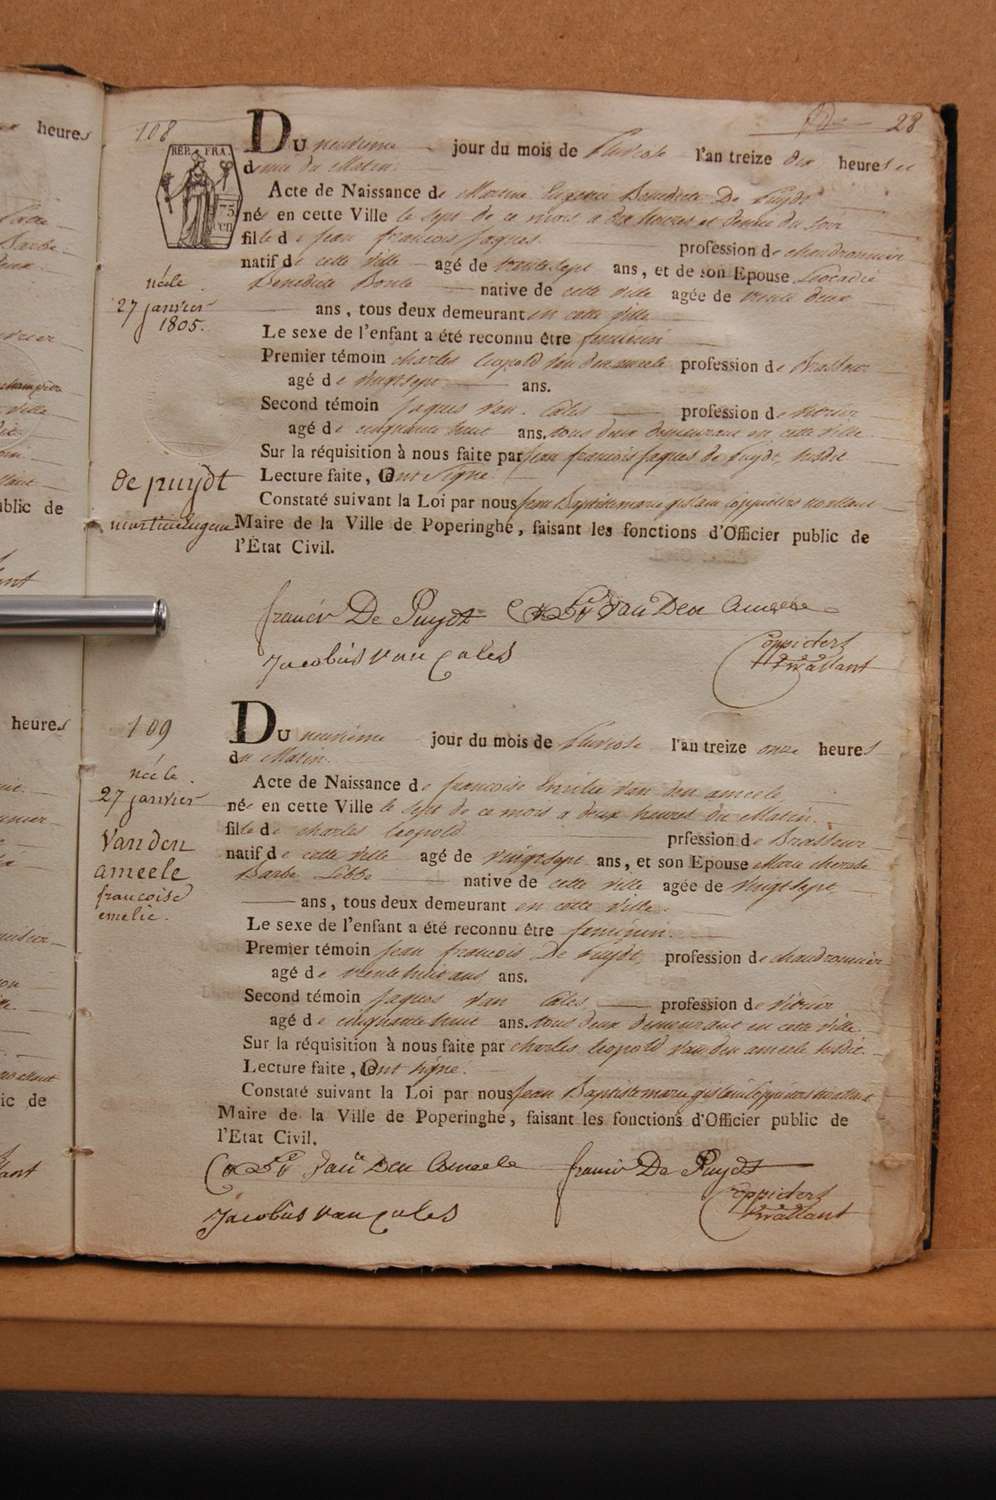 heures
blic de
heures
ic de
28
108
REP. FRA.
75
cen
Du neuvieme jour du mois de Pluviose l'an treize dix heures et
demie du Matin.
Acte de Naissance de Eugenie Benedicte De Puydt
née en cette Ville le sept de ce mois a dix heures et demie du soir
fille de jean francois jaques profession de chaudronnier
natif de cette ville agé de trente sept ans, et de son Epouse Leocadie
Benedicte native de cette ville agée de trente deux
ans, tous deux demeurant en cette ville
Le sexe de l'enfant a été reconnu être feminin
Premier témoin charles leopold van den ameele profession de Brasseur
agé de vingt sept ans.
Second témoin jaques van Cales profession de vitrier
agé de cinquante huit ans. tous deux demeurant en cette ville
Sur la réquisition à nous faite par jean francois jaques de Puydt, susdit
Lecture faite, Ont Signé.
Constaté suivant la Loi par nous jean Baptiste
Maire de la Ville de Poperinghe, faisant les fonctions d'Officier public de
l'État Civil.
née le
27 janvier
1805.
de puydt
francis De Puydt van Den Ameele
Jacobus van Cales
109
Du neuvieme jour du mois de Pluviose l'an treize onze heures
du Matin.
Acte de Naissance de francoise Emilie Van den ameele
née en cette Ville le sept de ce mois a deux heures du Matin.
fille de charles leopold prfession de Brasseur
natif de cette ville agé de vingt sept ans, et son Epouse Marie
Barbe native de cette ville agée de vingt sept
ans, tous deux demeurant en cette ville.
Le sexe de l'enfant a été reconnu être feminin.
Premier témoin jean francois De Puydt, profession de chaudronnier
agé de trente huit ans ans.
Second témoin jaques van Cales profession de vitrier
agé de cinquante huit ans. tous deux demeurant en cette ville
Sur la réquisition à nous faite par charles leopold van den ameele susdit.
Lecture faite, Ont signé.
Constaté suivant la Loi par nous jean Baptiste
Maire de la Ville de Poperinghe, faisant les fonctions d'Officier public de
l'Etat Civil.
née le
27 janvier
Van den
ameele
francoise
emelie.
van Den Ameele francis De Puydt
Jacobus van Cales